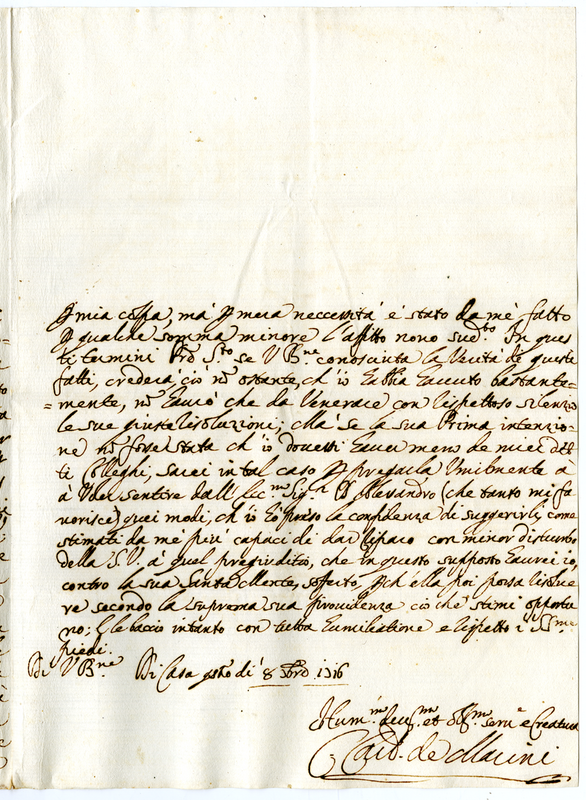 mia colpa, mà p mera neccessità è stato da mè fatto
p qualche somma minore l'affitto nono sud.to In ques
ti termini Prē S.to se V B.ne conosciuta la Verità de questi
fatti, crederà ciò nō ostante, ch'io habbia hauuto bastante=
=mente, nō haurò che da Venerare con rispettoso silenzio
le sue giuste risoluzioni; Mà se la sua Prima intenzio=
ne nō fosse stata ch'io douessi hauer meno de miei det=
ti Colleghi, sarei in tal caso p pregarla Umilmente à
à Voler sentire dall' Ecc.mo Sig.r D Alesandro (che tanto mi fa
uorisce) quei modi, ch'io hò preso la confidenza di suggerirli, come
stimati da mè più capaci de dar riparo con minor disturbo
della S.V. à quel pregiuditio, che in questo supposto haurei io,
contro la sua Santa Mente, sofferto, pch ella poi possa risolue
re secondo la suprema sua prouidenza ciò che stimi opportu
no; E le bacio intanto con tutta humiliatione e rispetto i SS.mi
Piedi.
Di V B.ne Di Casa di 8 1716
Hum.mo deu.mo et obl.mo seru.e e Creatura
Card. de Marini